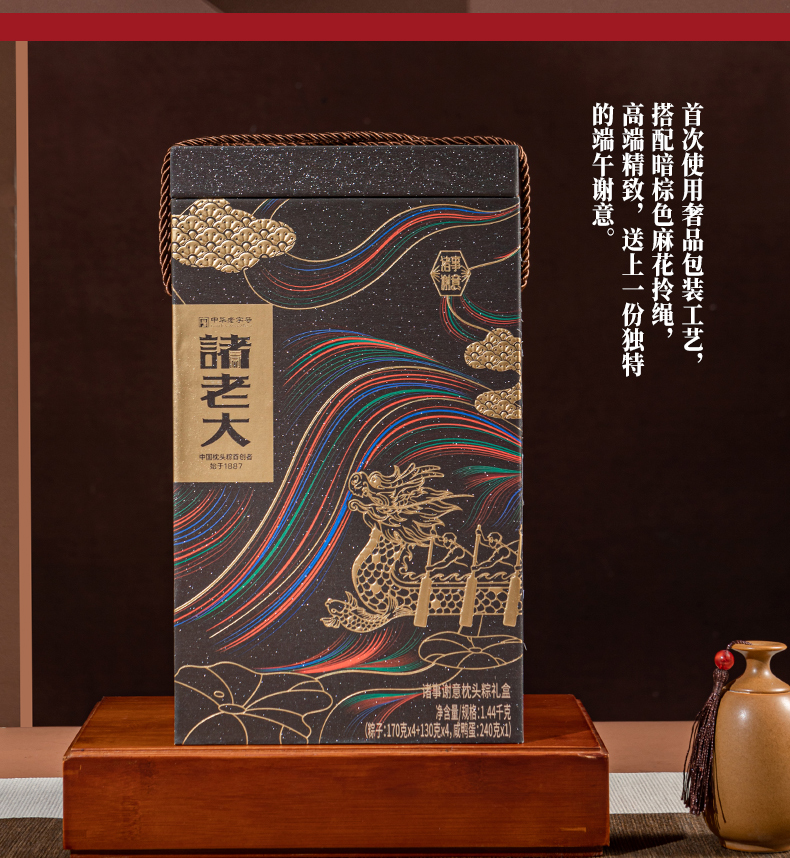 首次使用奢品包装工艺，
搭配暗棕色麻花拎绳，
高端精致，送上一份独特
的端午谢意。
诸事
谢意
中华老字号
諸老大
中国枕头粽首创者
始于1887
诸事谢意枕头粽礼盒
净含量/规格:1.44千克
(粽子:170克x4+130克x4,咸鸭蛋:240克x1)